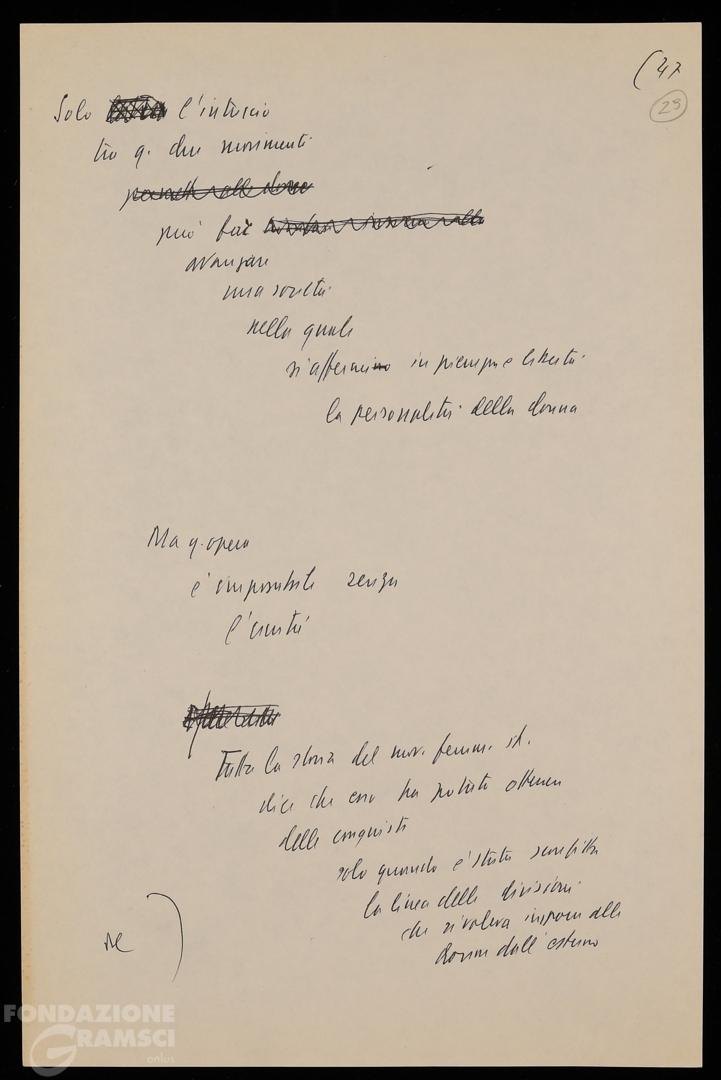 (47
29
Solo l'intreccio
tra q. due movimenti
può far
avanzare
una società
nella quale
si affermi in pienezza e libertà
la personalità della donna
Ma q. opera
è impossibile senza
l'unità
Tutta la storia del mov. femm. it.
dice che esso ha potuto ottenere
delle conquiste
solo quando è stata sconfitta
la linea delle divisioni
che si voleva imporre alle
donne dall'esterno
FONDAZIONE
GRAMSCI
onlus